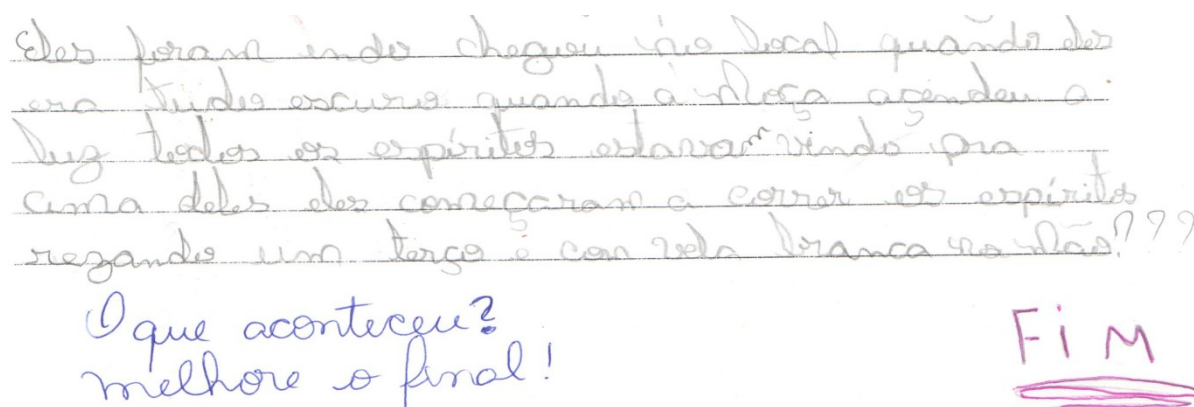 Eles foram indo chegou no local quando eles
era tudo escuro quando a Moça acendeu a
luz todos os espíritos estavam vindo pra
cima deles eles começaram a correr os espíritos
rezando um terço e com vela branca na Mão???
O que aconteceu?
melhore o final!
FiM